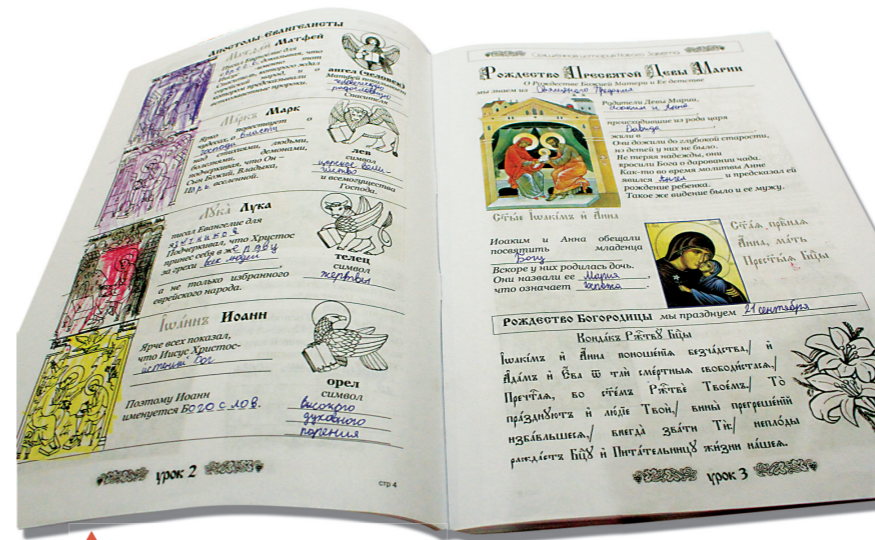 Апостолы-Евангелисты
Матфей
Писал Евангелие для
евреев, доказывая, что
именно тот
Спаситель, которого ждал
еврейский народ, и о
котором предсказывали
ветхозаветные пророки.
ангел (человек)
Матфей показал
человеческую
родословную
Спасителя
Марк
Ярко повествует о
чудесах, о власти
Господа
над стихиями, людьми,
болезнями, демонами,
подчеркивая, что Он –
Сын Божий, Владыка,
Царь вселенной.
лев
символ
царское вели-
чество
и всемогущества
Господа.
Лꙋка̀ Лука
писал Евангелие для
язычников
Подчеркивал, что Христос
принес себя в жертву
за грехи всех людей
а не только избранного
еврейского народа.
телец
символ
жертвы
Іѡа́ннъ Иоанн
Ярче всех показал,
что Иисус Христос-
истинный Бог
Поэтому Иоанн
именуется Богослов.
орел
символ
высокого
духовного
парения
урок 2
стр 4
Рождество Пресвятой Девы Марии
О Рождестве Божией Матери и Ее детстве
мы знаем из Священного Предания
Родители Девы Марии,
Иоаким и Анна
происходившие из рода царя
Давида
жили в
Они дожили до глубокой старости,
но детей у них не было.
Не теряя надежды, они
просили Бога о даровании чада.
Как-то во время молитвы Анне
явился Ангел и предсказал ей
рождение ребенка.
Такое же видение было и ее мужу.
Ст҃ы́и Іѡаки́мъ и҆ А҆́нна
Иоаким и Анна обещали
посвятить младенца
Богу
Вскоре у них родилась дочь.
Они назвали ее Мария,
что означает госпожа.
Ст҃а́ѧ прⷣвнаѧ
А҆́нна, ма́ть
Прест҃ы́ѧ Бц҃ы
Рождество Богородицы мы празднуем 21 сентября
Конда́къ Рж҃тву̀ Бц҃ы
І҆ѡакі́мъ и҆ А҆́нна поноше́нїѧ безча́дства,/ и҆
А҆да́мъ и҆ Є҆́ѵа ѿ тлѝ сме́ртныѧ свободи́стасѧ,/
Пречⷭ҇таѧ, во ст҃е́мъ Рж҃твѣ̀ Твое́мъ./ То̀
пра́зднꙋютъ и҆ лю́дїе Твоѝ,/ вины̀ прегреше́нїй
и҆зба́вльшесѧ,/ внегда̀ зва́ти Тѝ:/ непло́ды
ражда́етъ Бц҃ꙋ и҆ Пита́тельницꙋ жи́зни на́шеѧ.
урок 3